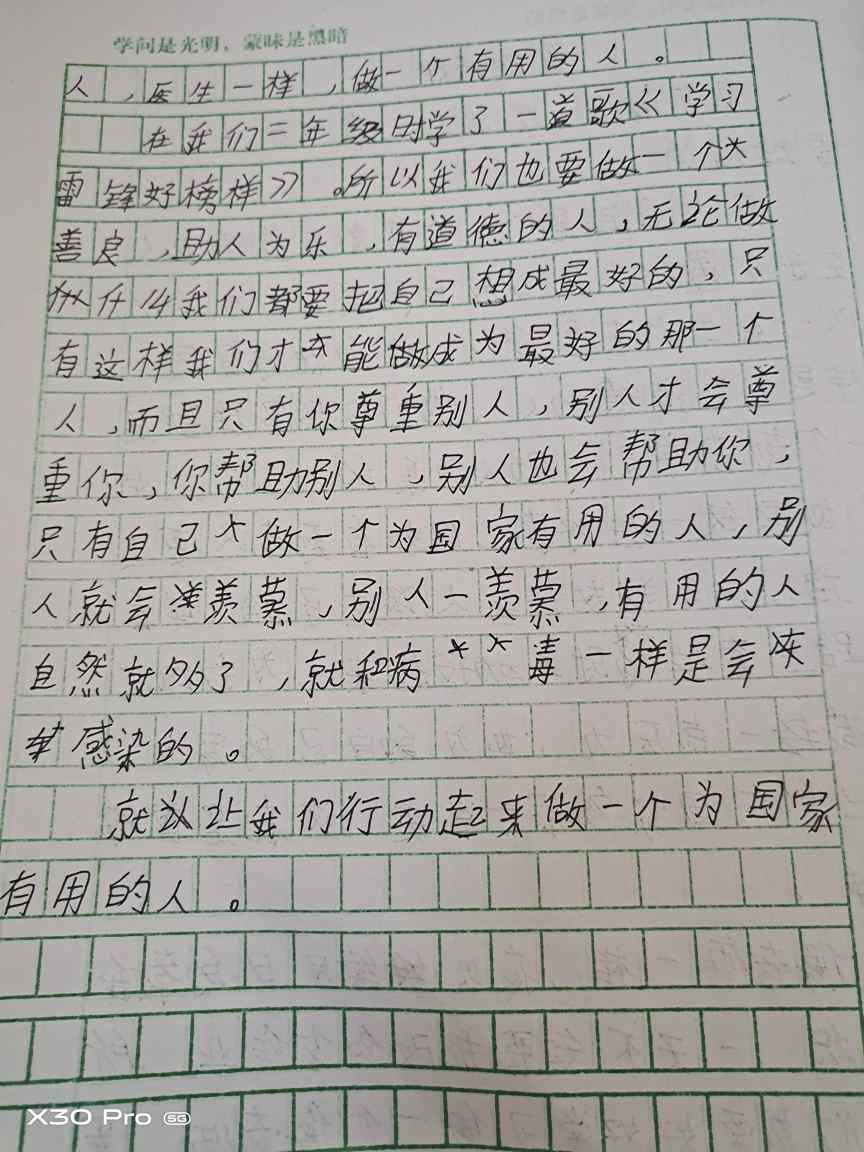 学问是光明，蒙昧是黑暗
人，医生一样，做一个有用的人。
在我们二年级时学了一首歌《学习
雷锋好榜样》。所以我们也要做一个
善良，助人为乐，有道德的人，无论做
什么我们都要把自己想成最好的，只
有这样我们才能做成为最好的那一个
人，而且只有你尊重别人，别人才会尊
重你，你帮助别人，别人也会帮助你，
只有自己做一个为国家有用的人，别
人就会羡慕，别人一羡慕，有用的人
自然就多了，就和病毒一样是会
感染的。
就以让我们行动起来做一个为国家
有用的人。
X30 Pro 5G